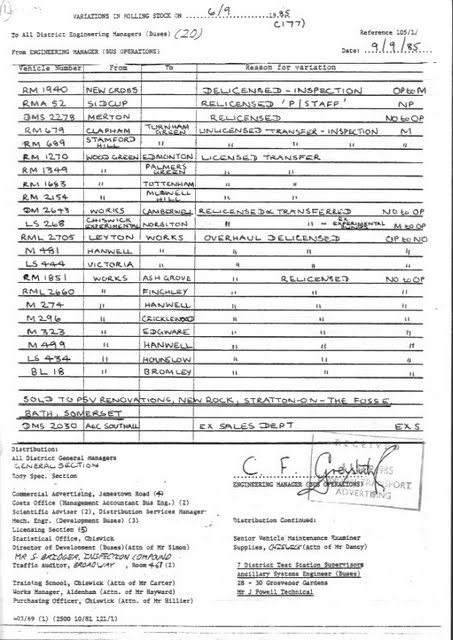 VARIATIONS IN ROLLING STOCK ON 6/9 1985
(177)
To All District Engineering Managers (Buses) (20)
Reference 105/1/
From ENGINEERING MANAGER (BUS OPERATIONS)
Date: 9/9/85
Vehicle Number From To Reason for variation
RM 1940 NEW CROSS DELICENSED - INSPECTION OP to M
RMA 52 SIDCUP RELICENSED 'P/STAFF' NP
DMS 2278 MERTON RELICENSED NO to OP
RM 679 CLAPHAM TURNHAM GREEN UNLICENSED TRANSFER - INSPECTION M
RM 689 STAMFORD HILL " " " " "
RM 1270 WOOD GREEN EDMONTON LICENSED TRANSFER
RM 1349 " PALMERS GREEN " "
RM 1683 " TOTTENHAM " "
RM 2154 " MUSWELL HILL " "
DM 2643 WORKS CAMBERWELL RELICENSED & TRANSFERRED NO to OP
LS 268 CHISWICK EXPERIMENTAL NORBITON " " - EX EXPERIMENTAL M to OP
RML 2705 LEYTON WORKS OVERHAUL DELICENSED OP to NO
M 481 HANWELL " " " "
LS 444 VICTORIA " " " "
RM 1851 WORKS ASH GROVE " RELICENSED NO to OP
RML 2660 " FINCHLEY " " "
M 274 " HANWELL " " "
M 296 " CRICKLEWOOD " " "
M 323 " EDGWARE " " "
M 499 " HANWELL " " "
LS 434 " HOUNSLOW " " "
BL 18 " BROMLEY " " "
SOLD TO PSV RENOVATIONS, NEW ROCK, STRATTON-ON-THE FOSSE,
BATH, SOMERSET
DMS 2030 AEC SOUTHALL EX SALES DEPT EX S
Distribution:
All District General Managers
GENERAL SECTION
Tory Spec. Section
C. F.
RECEIVED
1985
TRANSPORT
ADVERTISING
ENGINEERING MANAGER (BUS OPERATIONS)
Commercial Advertising, Jamestown Road (4)
Costs Office (Management Accountant Bus Eng.) (2)
Scientific Adviser (2), Distribution Services Manager
Mech. Engr. (Development Buses) (3)
Licensing Section (5)
Statistical Office, Chiswick
Director of Development (Buses)(Attn of Mr Simon)
MR S. BRIDGER, INSPECTION COMPOUND
Traffic Auditor, BROADWAY, Room (2)
Training School, Chiswick (Attn of Mr Carter)
Works Manager, Aldenham (Attn of Mr Hayward)
Purchasing Officer, Chiswick (Attn of Mr Hillier)
Distribution Continued:
Senior Vehicle Maintenance Examiner
Supplies, CHISWICK (Attn of Mr Dancy)
7 District Test Station Supervisors
Ancillary Systems Engineer (Buses)
28 - 30 Grosvenor Gardens
Mr J Powell Technical
(1) (2500 10/81